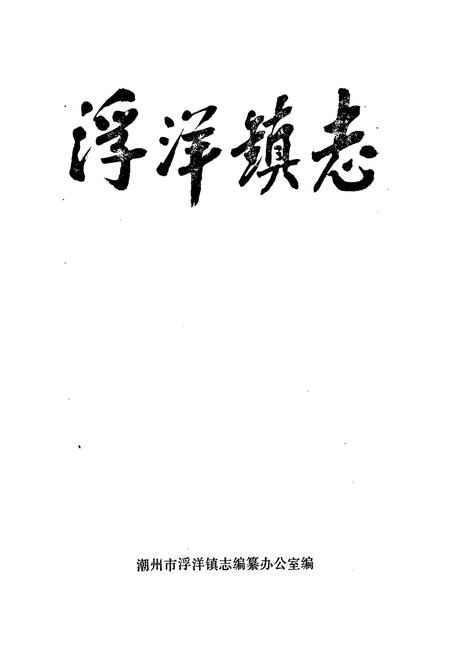 浮洋鎮志
潮州市浮洋镇志编纂办公室编